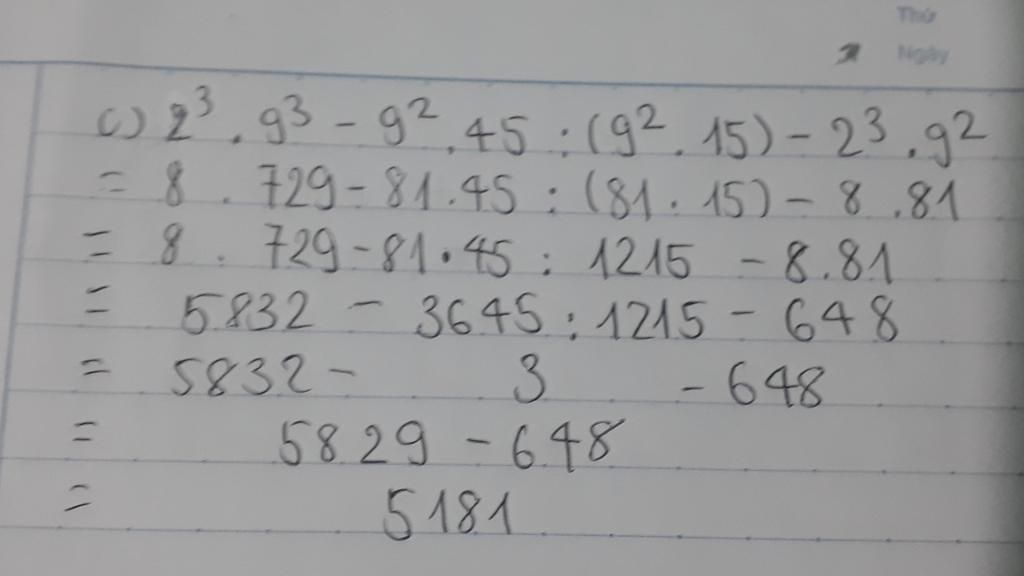 Thứ
Ngày
c) 2³ . 9³ - 9² . 45 : (9² . 15) - 2³ . 9²
= 8 . 729 - 81 . 45 : (81 . 15) - 8 . 81
= 8 . 729 - 81 . 45 : 1215 - 8 . 81
= 5832 - 3645 : 1215 - 648
= 5832 - 3 - 648
= 5829 - 648
= 5181